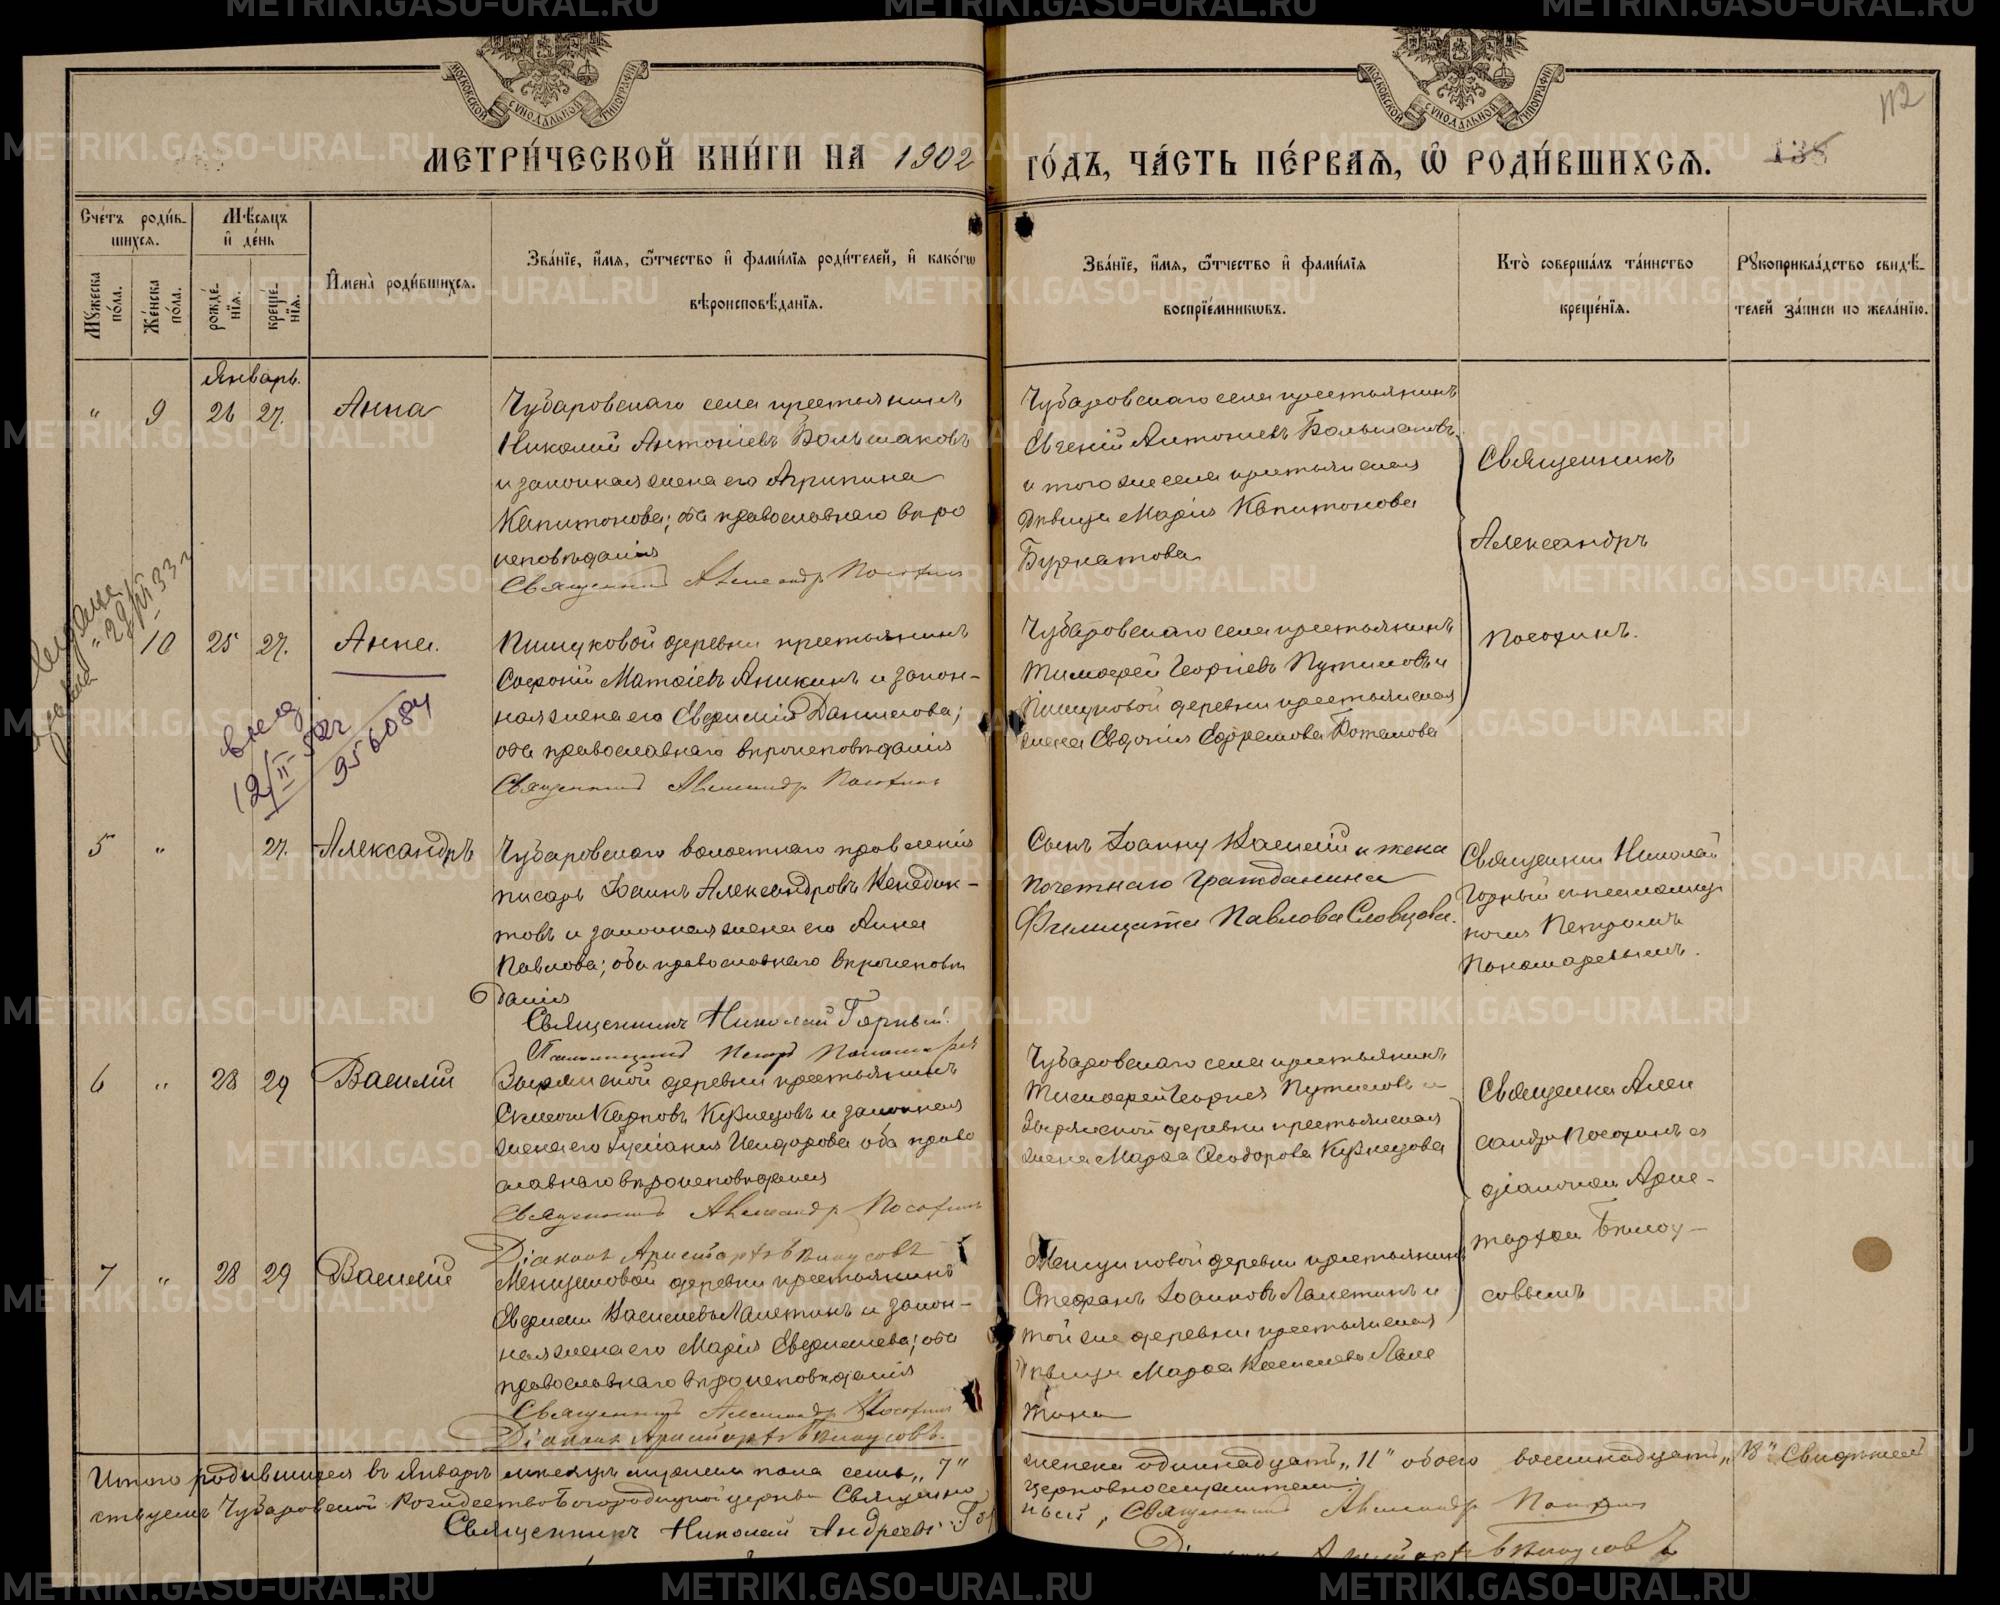 МЕТРИ́ЧЕСКОЙ КНИ́ГИ НА 1902 ГО́ДЪ, ЧА́СТЬ ПЕ́РВАЯ, Ѡ РОДИ́ВШИХСЯ.
138
112
МОСКОВСКОЙ СУНОДАЛЬНОЙ ТИПОГРАФІИ
МОСКОВСКОЙ СУНОДАЛЬНОЙ ТИПОГРАФІИ
Сче́тъ роди́в-
шихся.
Му́жеска по́ла.
Же́нска по́ла.
Мѣ́сяцъ
и де́нь
рожде́нїя.
креще́нїя.
И҆мена̀ роди́вшихся.
Зва́нїе, и҆мя, ѻ҆́тчество и҆ фами́лїя роди́телей, и҆ како́гѡ
вѣроисповѣ́данїя.
Зва́нїе, и҆мя, ѻ҆́тчество и҆ фами́лїя
воспрїе́мникѡвъ.
Кто̀ соверша́лъ та́инство
креще́нїя.
Рукоприкла́дство свидѣ́-
телей за́писи по жела́нїю.
Январь.
" 9 26 27. Анна
Чубаровскаго села крестьянинъ
Николай Антоніевъ Большаковъ
и законная жена его Агрипина
Капитонова; оба православнаго вѣро
исповѣданія
Священникъ Александръ Посохин
Чубаровскаго села крестьянинъ
Евгеній Антоніевъ Большаковъ
и того же села крестьянская
дѣвица Марія Капитонова
Бурматова
Священникъ
Александръ
Посохинъ.
" 10 25 27. Анна.
Пишуковой деревни крестьянинъ
Софоній Матѳіевъ Аникинъ и закон-
ная жена его Евфимія Данилова;
оба православнаго вѣроисповѣданія
Священникъ Александр Посохинъ
Чубаровскаго села крестьянинъ
Тимофей Георгіевъ Путиловъ и
деревни крестьянская
жена Евдокія Ефремова
29/VI 33 г
12/II
956084
5 " 27. Александръ
Чубаровскаго волостнаго правленія
писарь Іоаннъ Александровъ Кенедик-
товъ и законная жена его Анна
Павлова; оба православнаго вѣроисповѣ
данія
Священникъ Николай Горный.
Псаломщикъ Петръ Пономарев
Сынъ Іоанну Василій и жена
почетнаго гражданина
Филицата Павлова Словцова.
Священник Николай
Горный с псаломщи
комъ Петромъ
Пономаревымъ.
6 " 28 29 Василій
Зырянской деревни крестьянинъ
Симеон Карповъ Кузнецовъ и законная
жена его Іуліанія Исидорова оба право
славнаго вѣроисповѣданія
Священникъ Александръ Посохинъ
Діаконъ Аристархъ Бѣлоусовъ
Чубаровскаго села крестьянинъ
Тимофей Георгіев Путиловъ и
Зырянской деревни крестьянская
жена Марѳа Ѳеодорова Кузнецова
Священник Алек
сандръ Посохинъ съ
діакономъ Арис-
тархом Бѣлоу-
совымъ
7 " 28 29 Василій
деревни крестьянинъ
Василіевъ Лапетинъ и закон-
ная жена его Марія; оба
православнаго вѣроисповѣданія
Священникъ Александръ Посохин
Діаконъ Аристархъ Бѣлоусовъ.
деревни крестьянинъ
Стефанъ Іоанновъ Лапетинъ и
той же деревни крестьянская
дѣвица Марѳа Василіева Лапе
тина
Итого родившихся въ Январѣ мѣсяцѣ мужеска пола семь „7“ женска одиннадцать „11“ обоего восемнадцать „18“ Свидѣтель
ствуемъ Чубаровской Рождество-Богородицкой церкви Священно церковнослужители:
Священникъ Николай Андреевъ Горный, Священникъ Александр Посохин
Діаконъ Аристархъ Бѣлоусовъ
METRIKI.GASO-URAL.RU